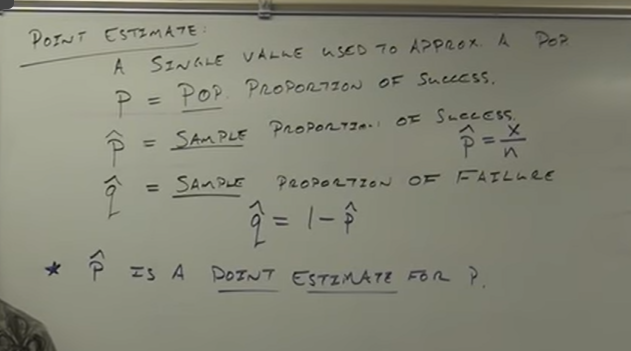 POINT ESTIMATE:
A SINGLE VALUE USED TO APPROX. A POP.
P = POP. PROPORTION OF SUCCESS.
p̂ = SAMPLE PROPORTION OF SUCCESS.
p̂ = x/n
q̂ = SAMPLE PROPORTION OF FAILURE
q̂ = 1 - p̂
* p̂ IS A POINT ESTIMATE FOR P.